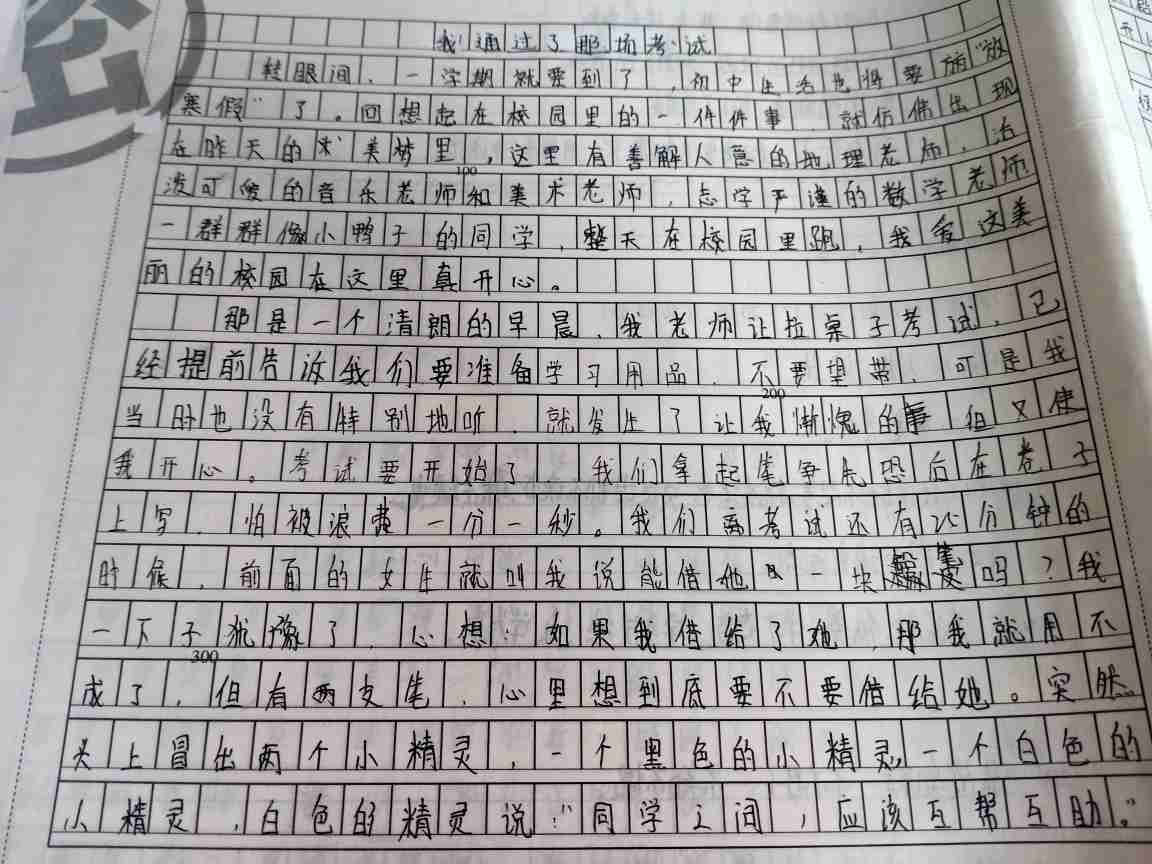 我通过了那场考试
转眼间，一学期就要到了，初中生活也将要放"放
寒假"了。回想起在校园里的一件件事，就仿佛出现
在昨天的美梦里，这里有善解人意的地理老师，活
泼可爱的音乐老师和美术老师，态学严谨的数学老师
100
一群群像小鸭子的同学，整天在校园里跑，我爱这美
丽的校园在这里真开心。
那是一个清朗的早晨，我老师让拉桌子考试，已
经提前告诉我们要准备学习用品，不要望带，可是我
200
当时也没有特别地听，就发生了让我惭愧的事但又使
我开心。考试要开始了，我们拿起笔争先恐后在卷子
上写，怕被浪费一分一秒。我们离考试还有25分钟的
时候，前面的女生就叫我说能借她一块笔吗？我
一下子犹豫了，心想：如果我借给了她，那我就用不
300
成了，但有两支笔，心里想到底要不要借给她。突然
头上冒出两个小精灵，一个黑色的小精灵一个白色的
小精灵，白色的精灵说："同学之间，应该互帮互助。"